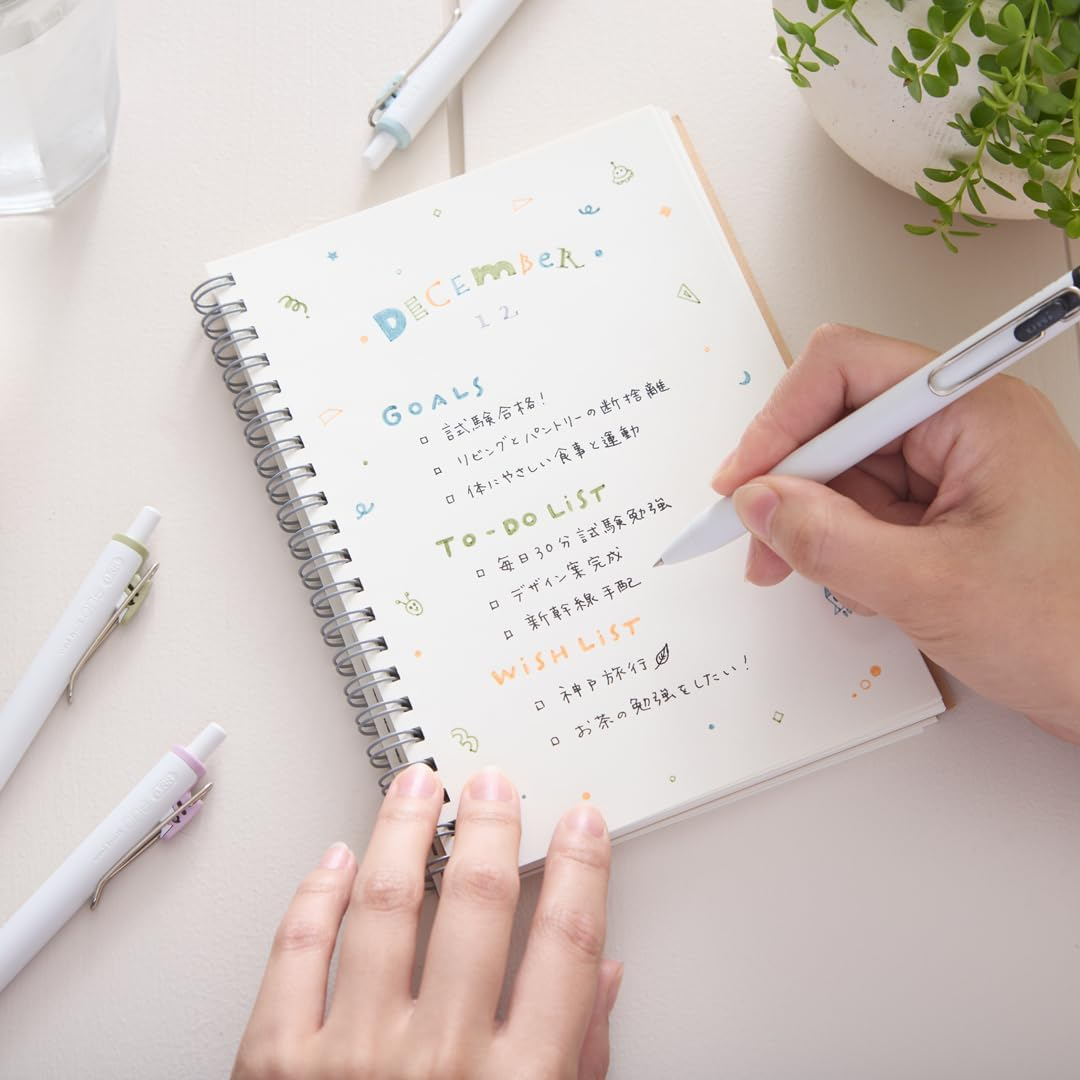 DECEMBER
12
GOALS
□ 試験合格!
□ リビングとパントリーの断捨離
□ 体にやさしい食事と運動
TO-DO LIST
□ 毎日30分試験勉強
□ デザイン案完成
□ 新幹線手配
WISH LIST
□ 神戸旅行
□ お茶の勉強をしたい!